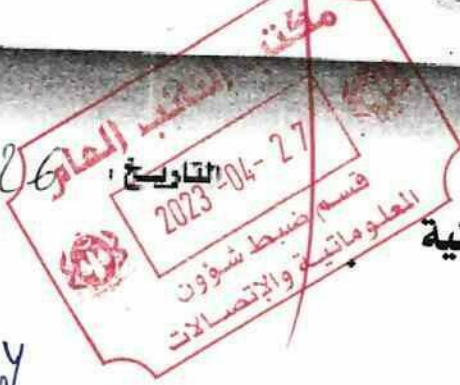 مكتب النائب العام
26
التاريخ :
2023-04-27
قسم ضبط شؤون
المعلوماتية والإتصالات
نية